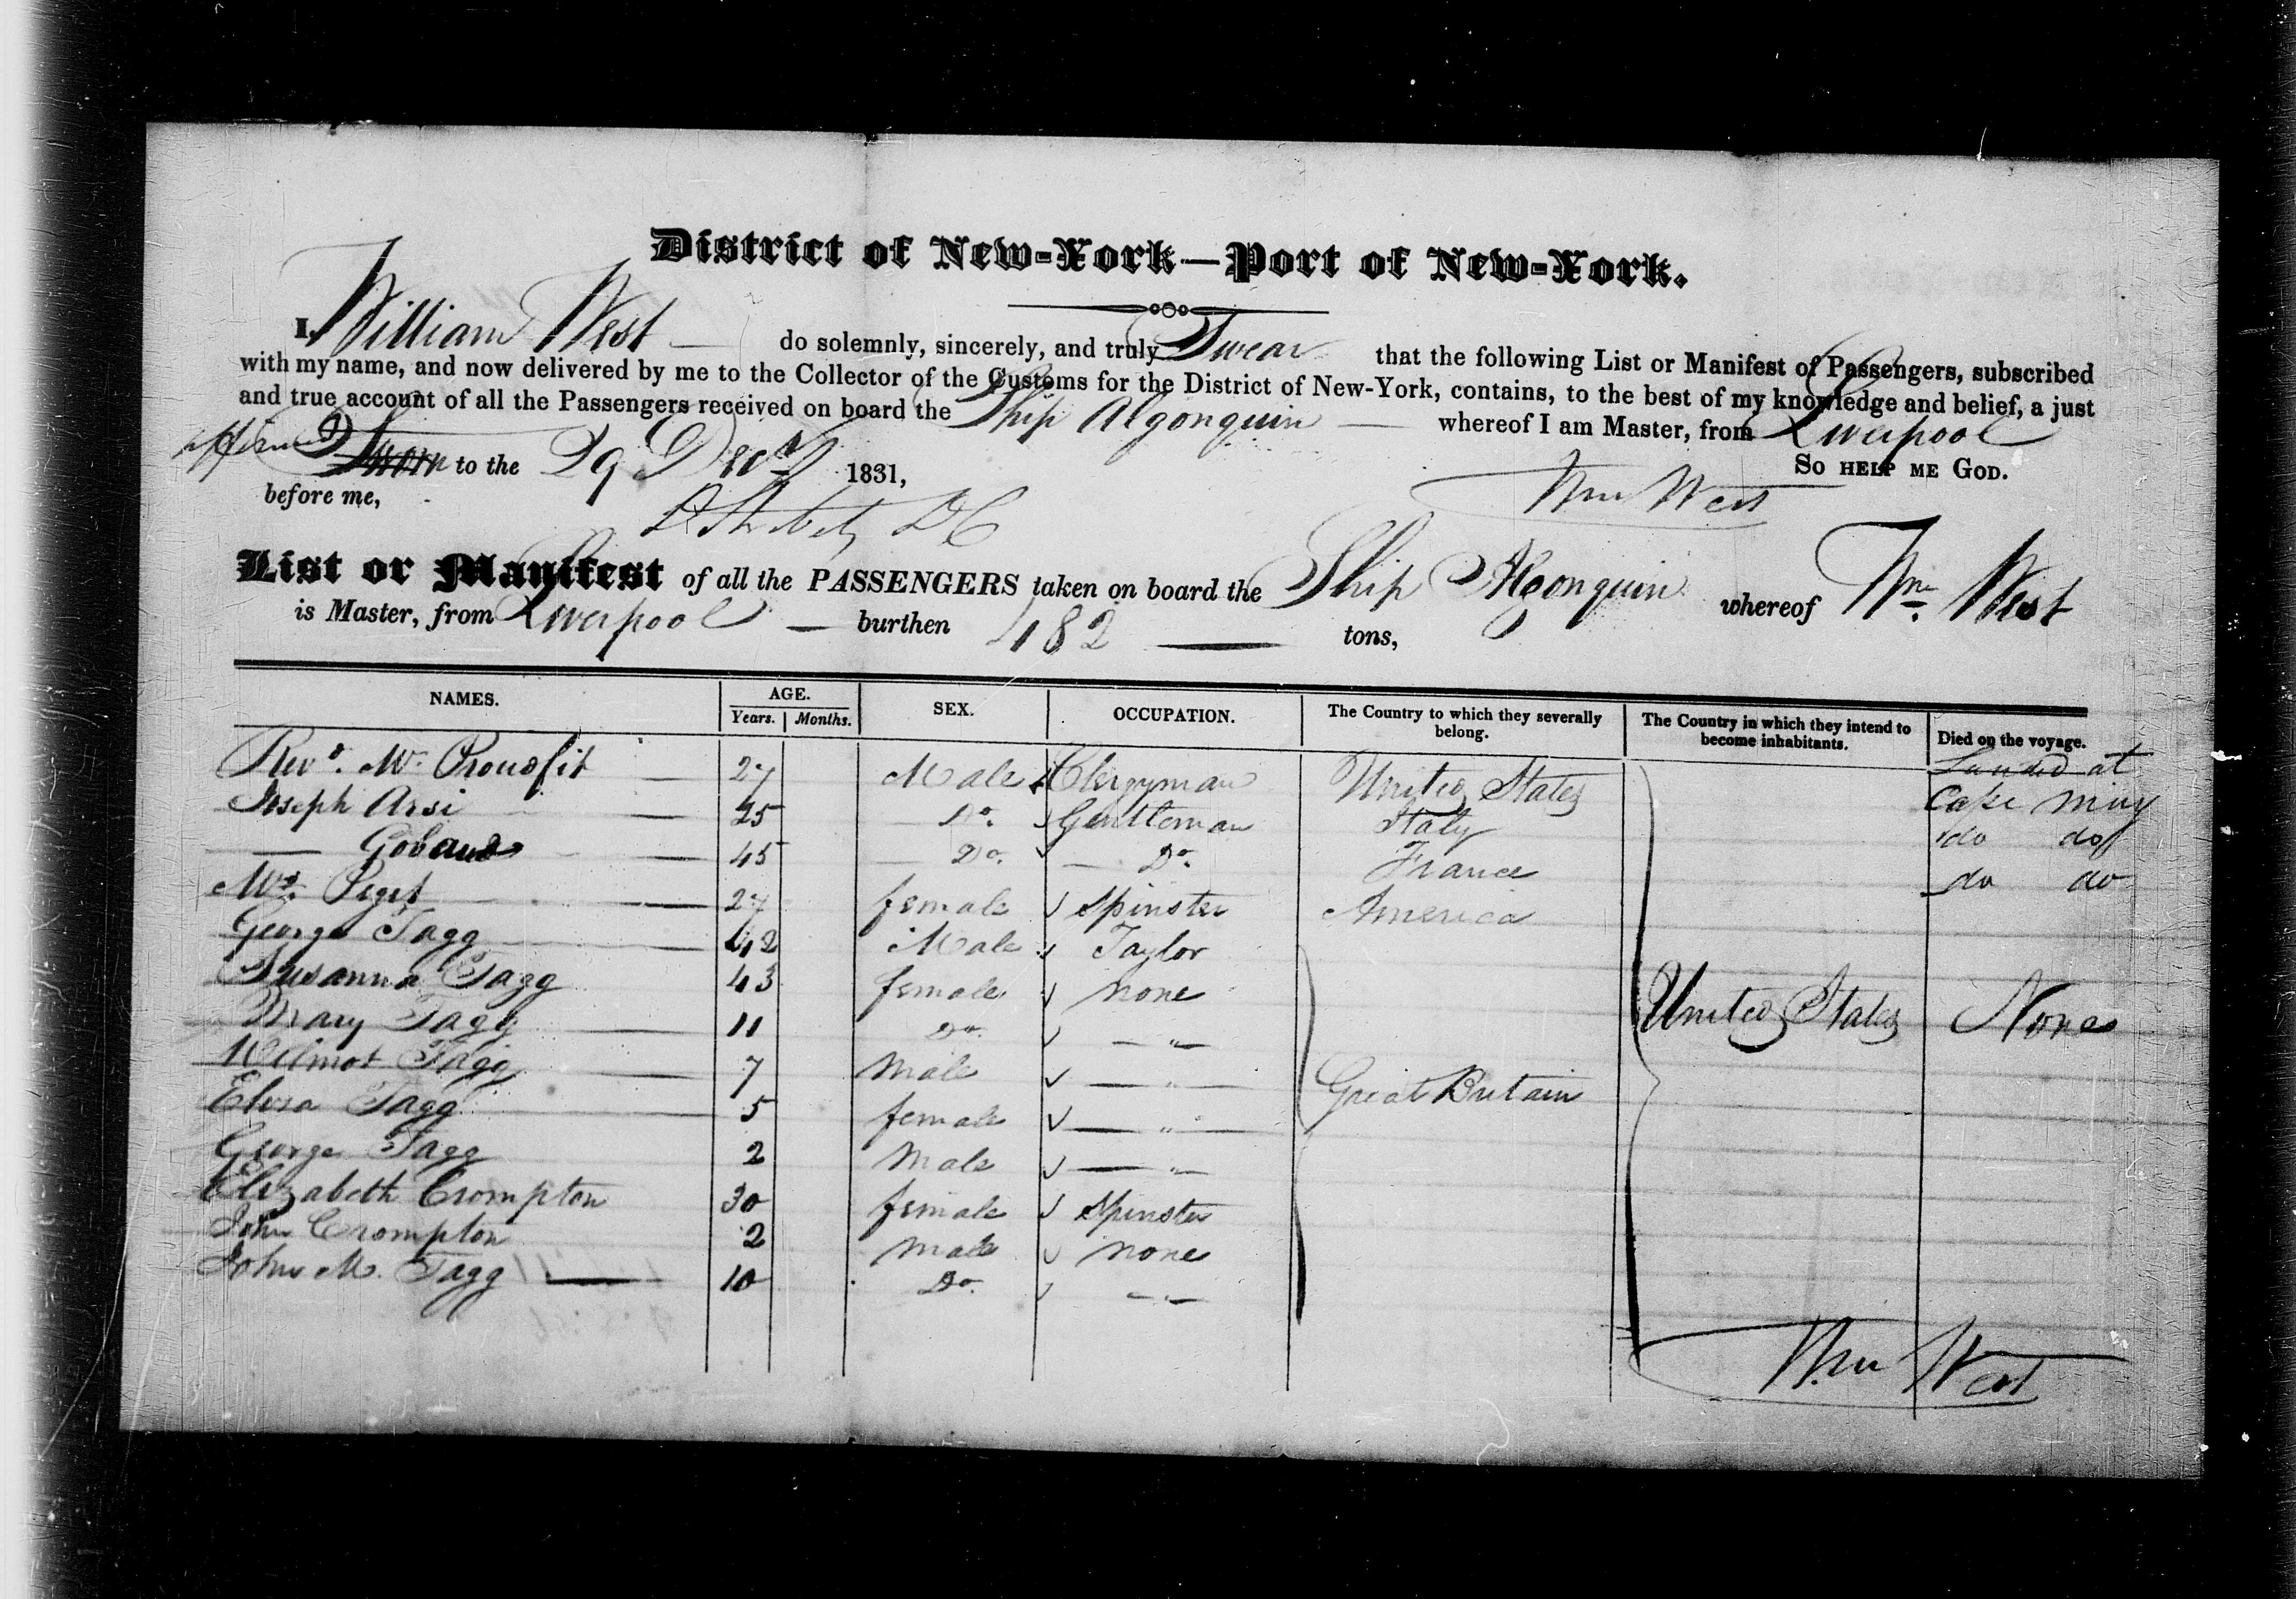 District of New-York—Port of New-York.
I, William West — do solemnly, sincerely, and truly Swear that the following List or Manifest of Passengers, subscribed
with my name, and now delivered by me to the Collector of the Customs for the District of New-York, contains, to the best of my knowledge and belief, a just
and true account of all the Passengers received on board the Ship Algonquin — whereof I am Master, from Liverpool
So help me God.
affirmed Sworn to the 29 Decr 1831,
before me,
Wm West
List or Manifest of all the PASSENGERS taken on board the Ship Algonquin whereof Wm. West
is Master, from Liverpool — burthen 482 — tons,
NAMES. AGE. SEX. OCCUPATION. The Country to which they severally belong. The Country in which they intend to become inhabitants. Died on the voyage.
Years. Months.
Revd. Mr. Proudfit — 27 Male Clergyman United States Landed at
Joseph Arsi — 25 Do. Gentleman Italy Cape May
— Gobaud — 45 Do. — Do. France do do
Mrs. — 27 female Spinster America do do
George Tagg 42 Male Taylor
Susanna Tagg 43 female none
Mary Tagg — 11 Do. — " —
Wilmot Tagg — 7 Male — " —
Eliza Tagg 5 female — " —
George Tagg 2 Male — " —
Elizabeth Crompton 30 female Spinster
John Crompton 2 Male none
John M. Tagg — 10 Do. — " —
Great Britain
United States
None
Wm West